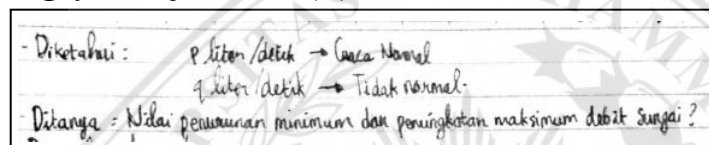 - Diketahui : p liter/detik → Cuaca Normal
q liter/detik → Tidak normal.
- Ditanya = Nilai penurunan minimum dan peningkatan maksimum debit sungai ?